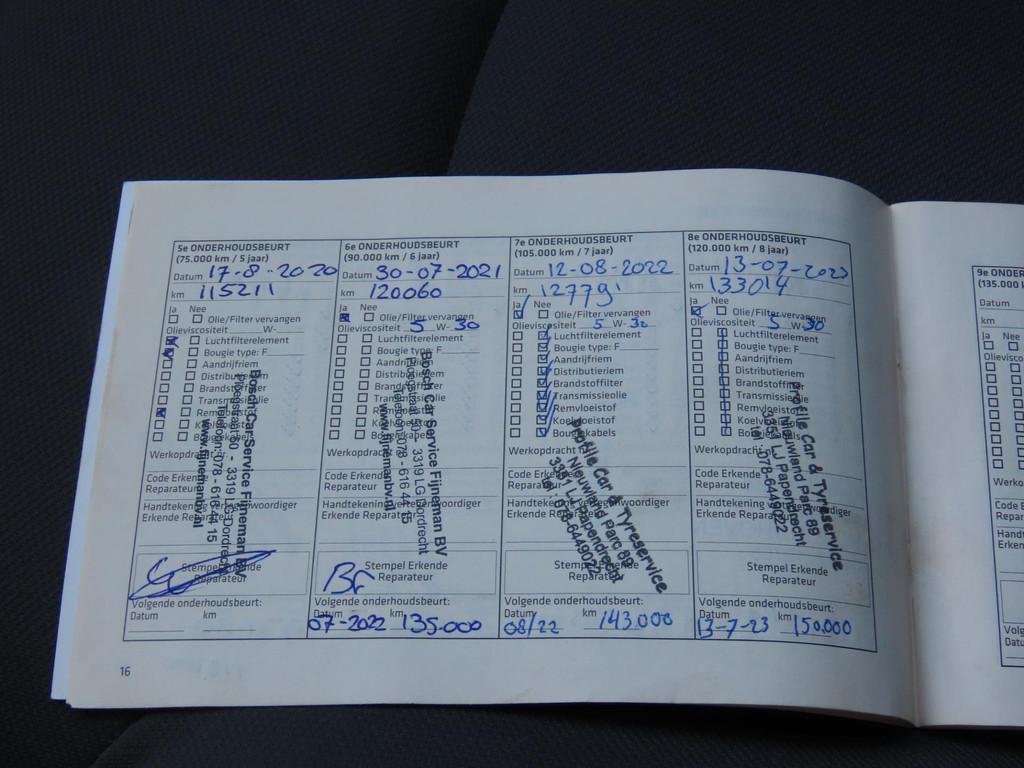 5e ONDERHOUDSBEURT
(75.000 km / 5 jaar)
Datum 17-8-2020
km 115211
Ja Nee
Olie/Filter vervangen
Olieviscositeit W-
Luchtfilterelement
Bougie type: F
Aandrijfriem
Distributieriem
Brandstoffilter
Transmissieolie
Werkopdracht
Code Erkende
Reparateur
Erkende Reparateur
Stempel Erkende
Reparateur
Volgende onderhoudsbeurt:
Datum km
Bosch Car Service Fijneman BV
Ploegstraat 50 - 3319 LG Dordrecht
Telefoon: 078 - 616 44 15
www.fijnemanbv.nl
6e ONDERHOUDSBEURT
(90.000 km / 6 jaar)
Datum 30-07-2021
km 120060
Ja Nee
Olie/Filter vervangen
Olieviscositeit 5 W-30
Luchtfilterelement
Bougie type: F
Aandrijfriem
Distributieriem
Brandstoffilter
Transmissieolie
Remvloeistof
Werkopdracht
Code Erkende
Reparateur
Erkende Reparateur
Stempel Erkende
Reparateur
Volgende onderhoudsbeurt:
Datum km
07-2022 135.000
Bosch Car Service Fijneman BV
Ploegstraat 50 - 3319 LG Dordrecht
Telefoon: 078 - 616 44 15
www.fijnemanbv.nl
7e ONDERHOUDSBEURT
(105.000 km / 7 jaar)
Datum 12-08-2022
km 12779
Ja Nee
Olie/Filter vervangen
Olieviscositeit 5 W-30
Luchtfilterelement
Bougie type: F
Aandrijfriem
Distributieriem
Brandstoffilter
Transmissieolie
Remvloeistof
Koelvloeistof
Bougiekabels
Werkopdracht
Code Erkende
Reparateur
Erkende Reparateur
Stempel Erkende
Reparateur
Volgende onderhoudsbeurt:
Datum km
08/22 143.000
Profile Car & Tyreservice
Nieuwland Parc 89
3351 LJ Papendrecht
Tel.: 078-6449022
8e ONDERHOUDSBEURT
(120.000 km / 8 jaar)
Datum 13-07-2023
km 133014
Ja Nee
Olie/Filter vervangen
Olieviscositeit 5 W-30
Luchtfilterelement
Bougie type: F
Aandrijfriem
Distributieriem
Brandstoffilter
Transmissieolie
Remvloeistof
Koelvloeistof
Bougiekabels
Werkopdracht
Code Erkende
Reparateur
Erkende Reparateur
Stempel Erkende
Reparateur
Volgende onderhoudsbeurt:
Datum km
13-7-23 150.000
Profile Car & Tyreservice
Nieuwland Parc 89
3351 LJ Papendrecht
Tel.: 078-6449022
16
9e ONDER
(135.000
Datum
km
Ja Nee
Olievisco
Werko
Code E
Repara
Handt
Erken
Volg
Datu